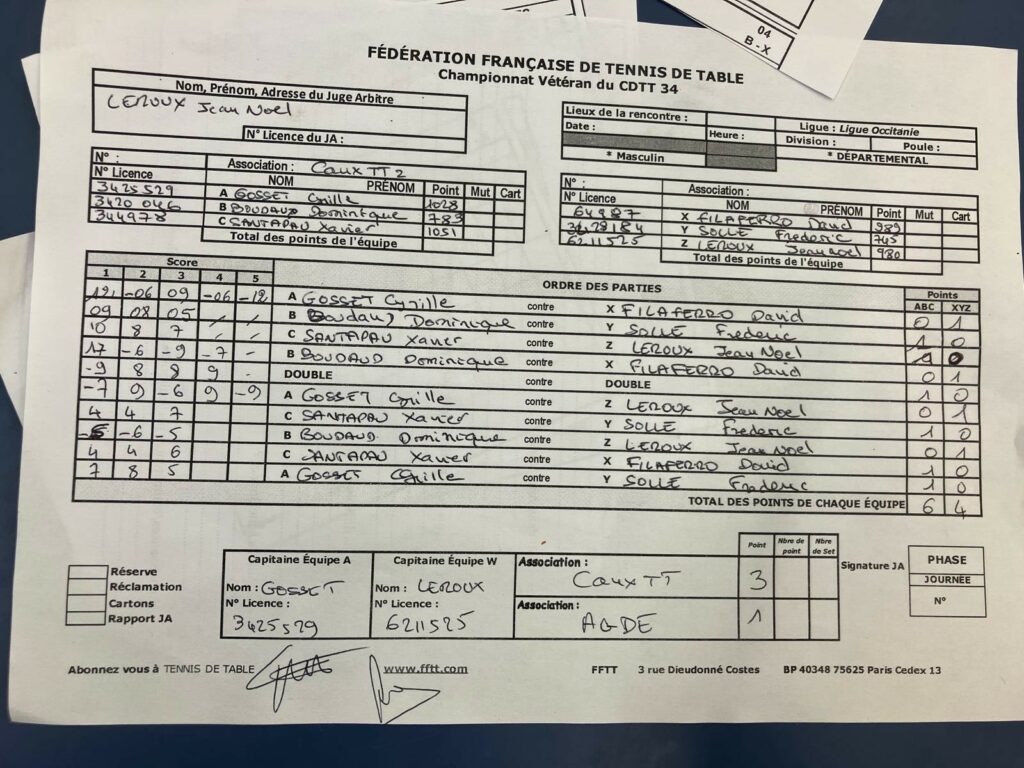 04
B - X
FÉDÉRATION FRANÇAISE DE TENNIS DE TABLE
Championnat Vétéran du CDTT 34
Nom, Prénom, Adresse du Juge Arbitre
LEROUX Jean Noel
N° Licence du JA :
Lieux de la rencontre : Ligue : Ligue Occitanie
Date : Heure : Division : Poule :
* Masculin * DÉPARTEMENTAL
N° : Association : Caux TT 2
N° Licence NOM PRÉNOM Point Mut Cart
3425529 A GOSSET Cyrille 1028
3420 046 B BOUDAUD Dominique 789
344978 C SANTAPAU Xavier 1051
Total des points de l'équipe
N° : Association :
N° Licence NOM PRÉNOM Point Mut Cart
64987 X FILAFERRO David 989
3428184 Y SOLLE Frederic 745
6211525 Z LEROUX Jean Noel 980
Total des points de l'équipe
Score ORDRE DES PARTIES Points
1 2 3 4 5 ABC XYZ
12, -06 09 -06 -12 A GOSSET Cyrille contre X FILAFERRO David 0 1
09 08 05 / / B Boudaud Dominique contre Y SOLLE Frederic 1 0
10 8 7 / - C SANTAPAU Xavier contre Z LEROUX Jean Noel 1 0
17 -6 -9 -7 - B BOUDAUD Dominique contre X FILAFERRO David 0 1
-9 8 8 9 - DOUBLE contre DOUBLE 1 0
-7 9 -6 9 -9 A GOSSET Cyrille contre Z LEROUX Jean Noel 0 1
4 4 7 C SANTAPAU Xavier contre Y SOLLE Frederic 1 0
-5 -6 -5 B BOUDAUD Dominique contre Z LEROUX Jean Noel 0 1
4 4 6 C SANTAPAU Xavier contre X FILAFERRO David 1 0
7 8 5 A GOSSET Cyrille contre Y SOLLE Frederic 1 0
TOTAL DES POINTS DE CHAQUE ÉQUIPE 6 4
Réserve
Réclamation
Cartons
Rapport JA
Capitaine Équipe A
Nom : GOSSET
N° Licence :
3425529
Capitaine Équipe W
Nom : LEROUX
N° Licence :
6211525
Point Nbre de point Nbre de Set
Association :
Caux TT 3
Association :
AGDE 1
Signature JA
PHASE
JOURNÉE
N°
Abonnez vous à TENNIS DE TABLE www.fftt.com FFTT 3 rue Dieudonné Costes BP 40348 75625 Paris Cedex 13